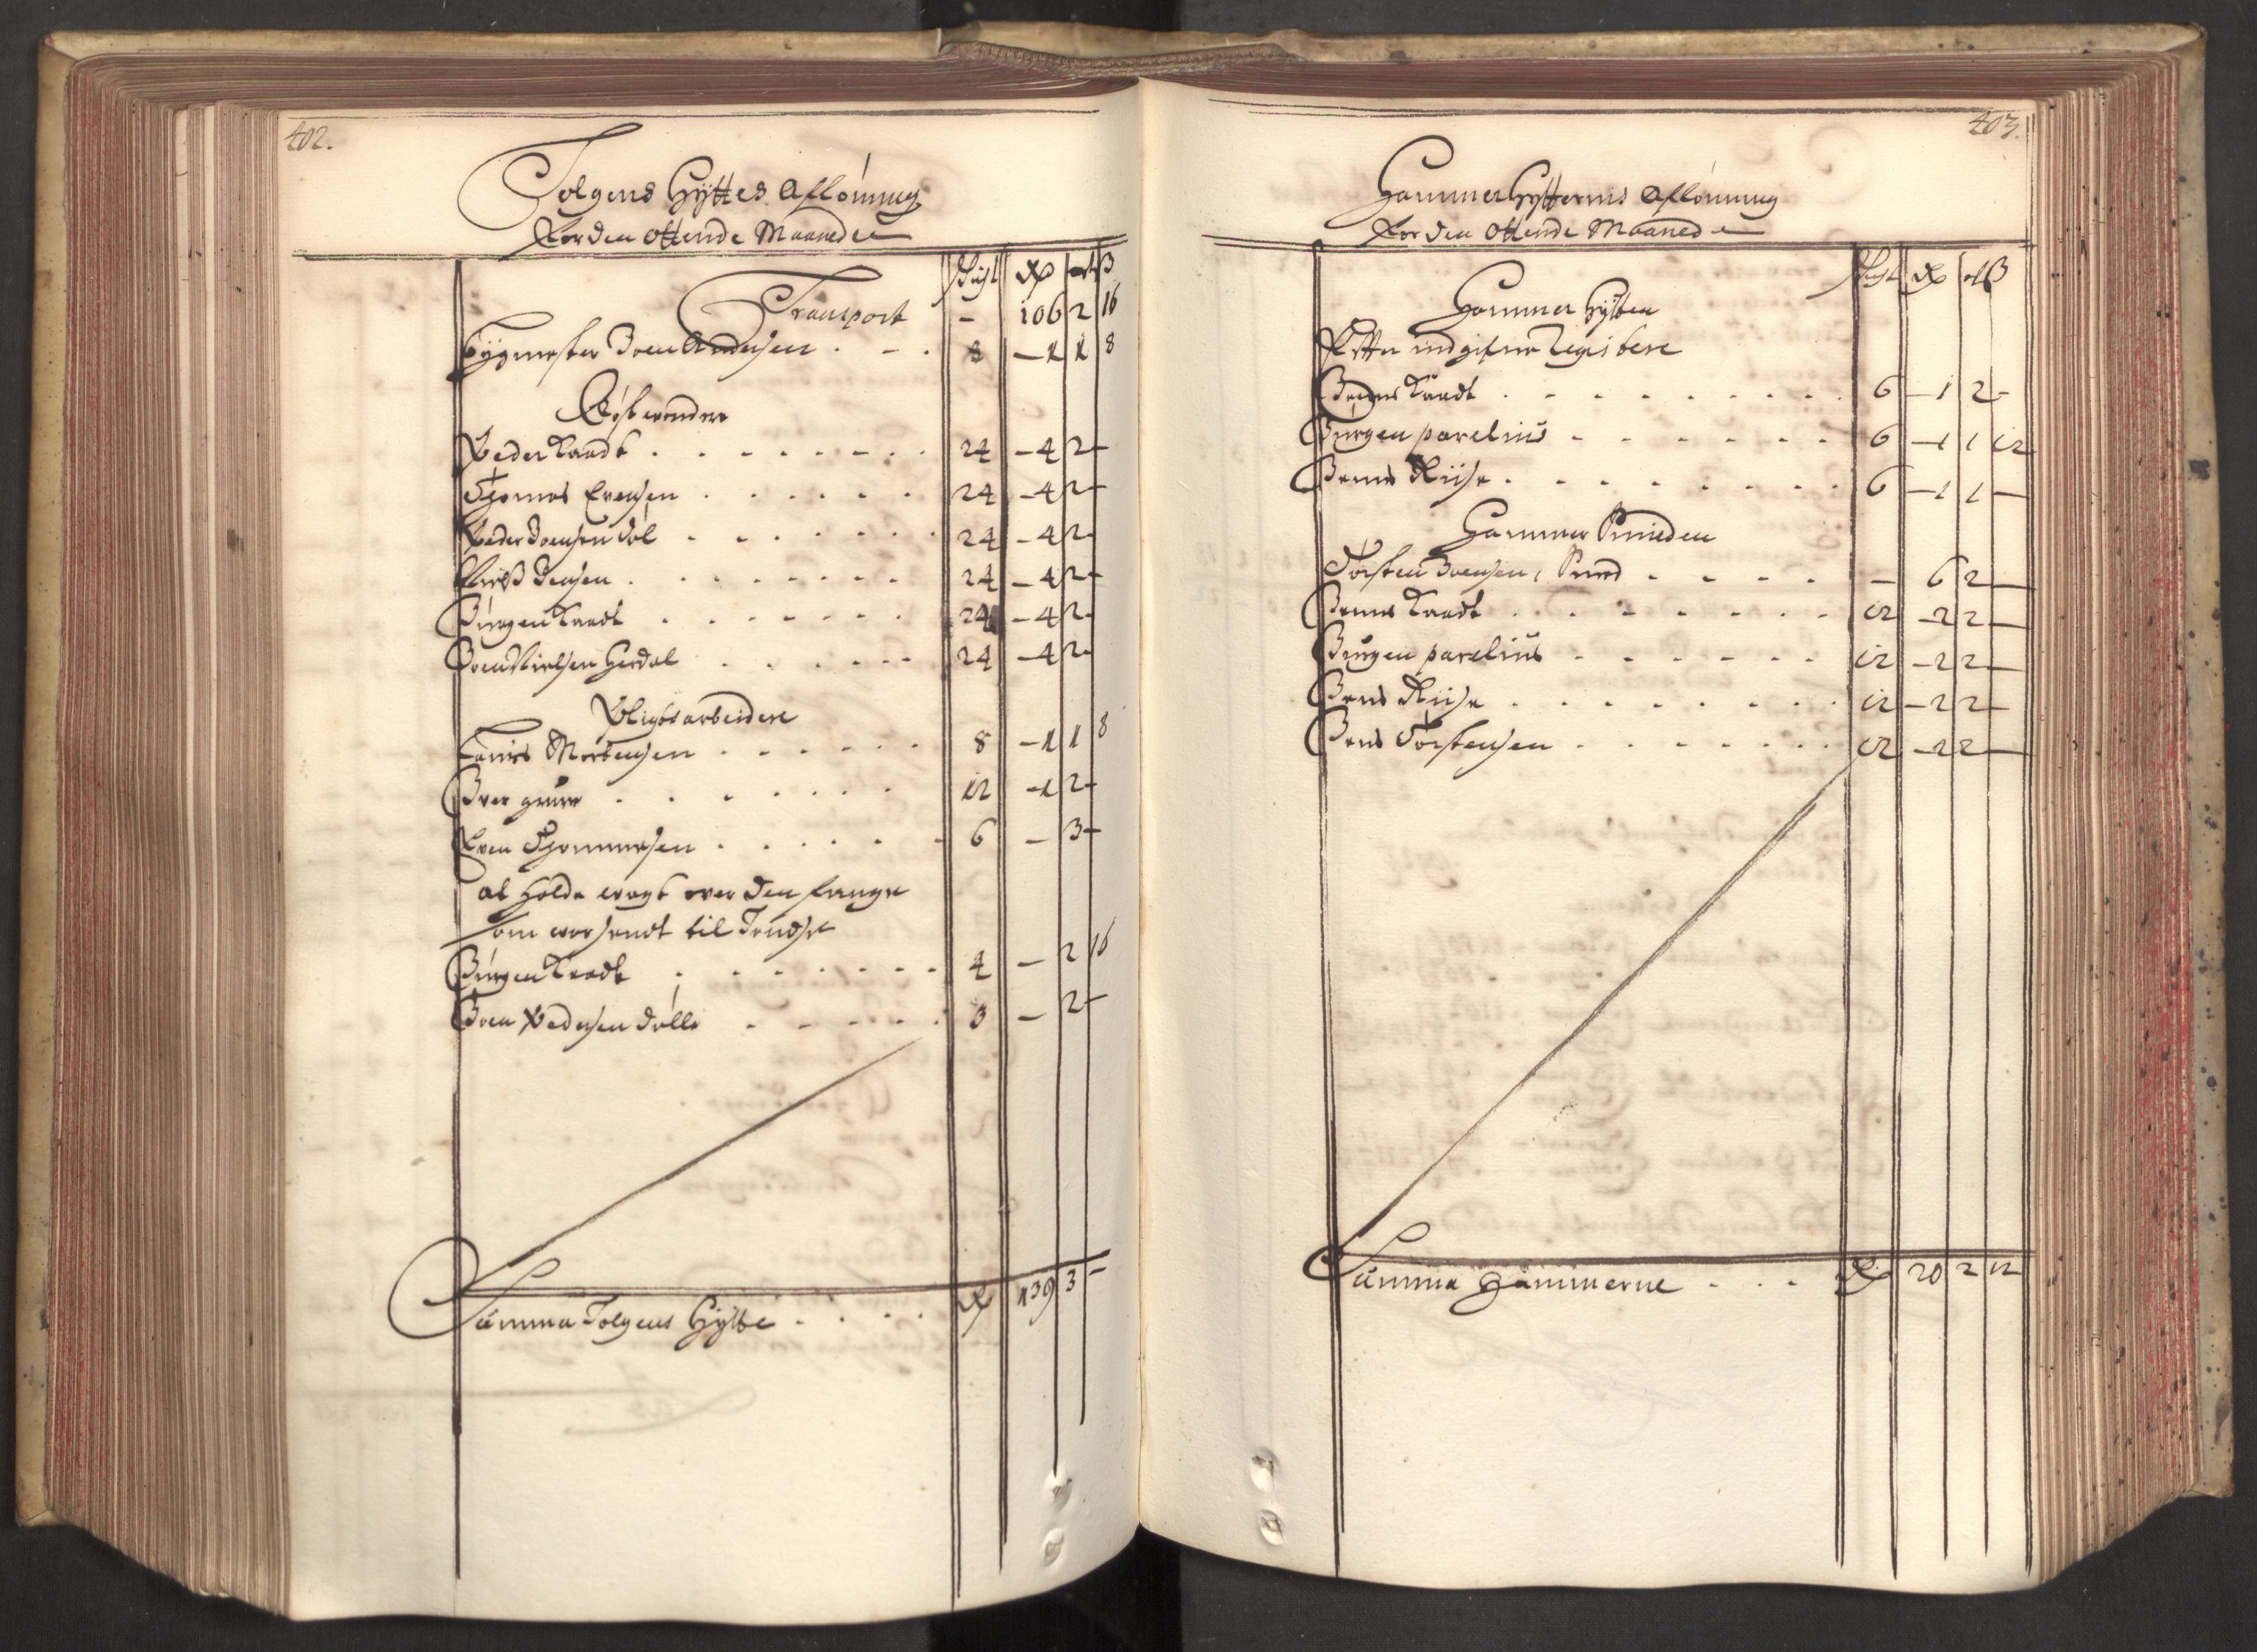 402.
Tolgens Hyttes Aflönning
For den Ottende Maaned
Skigt Rdr ort ß
Transport - 106 2 16
Bygmester Joen Andersen . - . 8 - 1 1 8
Röstvendere
Peder Kaadt . . . . . . . . 24 - 4 2 -
Thomas Evensen . . . . . . 24 - 4 2 -
Peder Joensen Döl . . . . . . 24 - 4 2 -
Jensen . . . . . . . 24 - 4 2 -
Jürgen Kaadt . . . . . . . 24 - 4 2 -
Joen Nielsen Herdal . . . . . . 24 - 4 2 -
Pligtsarbeidere
Mortensen . . . . . . 8 - 1 1 8
Iver grue . . . . . . . 12 - 1 2 -
Even Thommesen . . . . . . 6 - 3 -
at holde wagt over den fange
som war sendt til Trudse
Jürgen Kaadt . . . . . . . 4 - 2 16
Joen Pedersen Dölle . . . . . 3 - 2 -
Summa Tolgens Hytte . . . . Rdr 139 3 -
403.
Hammer Hytternes Aflönning
For den Ottende Maaned
Skigt Rdr ort ß
Hammer Hytten
Efter indgifne Zegister
Jens Kaadt . . . . . . . . . 6 - 1 2 -
Jürgen parelius - . . . . . 6 - 1 1 12
Jens Riise . . . . . . . . . 6 - 1 1 -
Hammer Smeden
Torsten Joensen, Smed . . . . - 6 2 -
Jens Kaadt . . . . . . . . 12 - 2 2 -
Jürgen parelius - . . . . . 12 - 2 2 -
Jens Riise . . . . . . . . 12 - 2 2 -
Jens Torstensen . . . . . . . 12 - 2 2 -
Summa Hammerne . . . Rdr 20 2 12